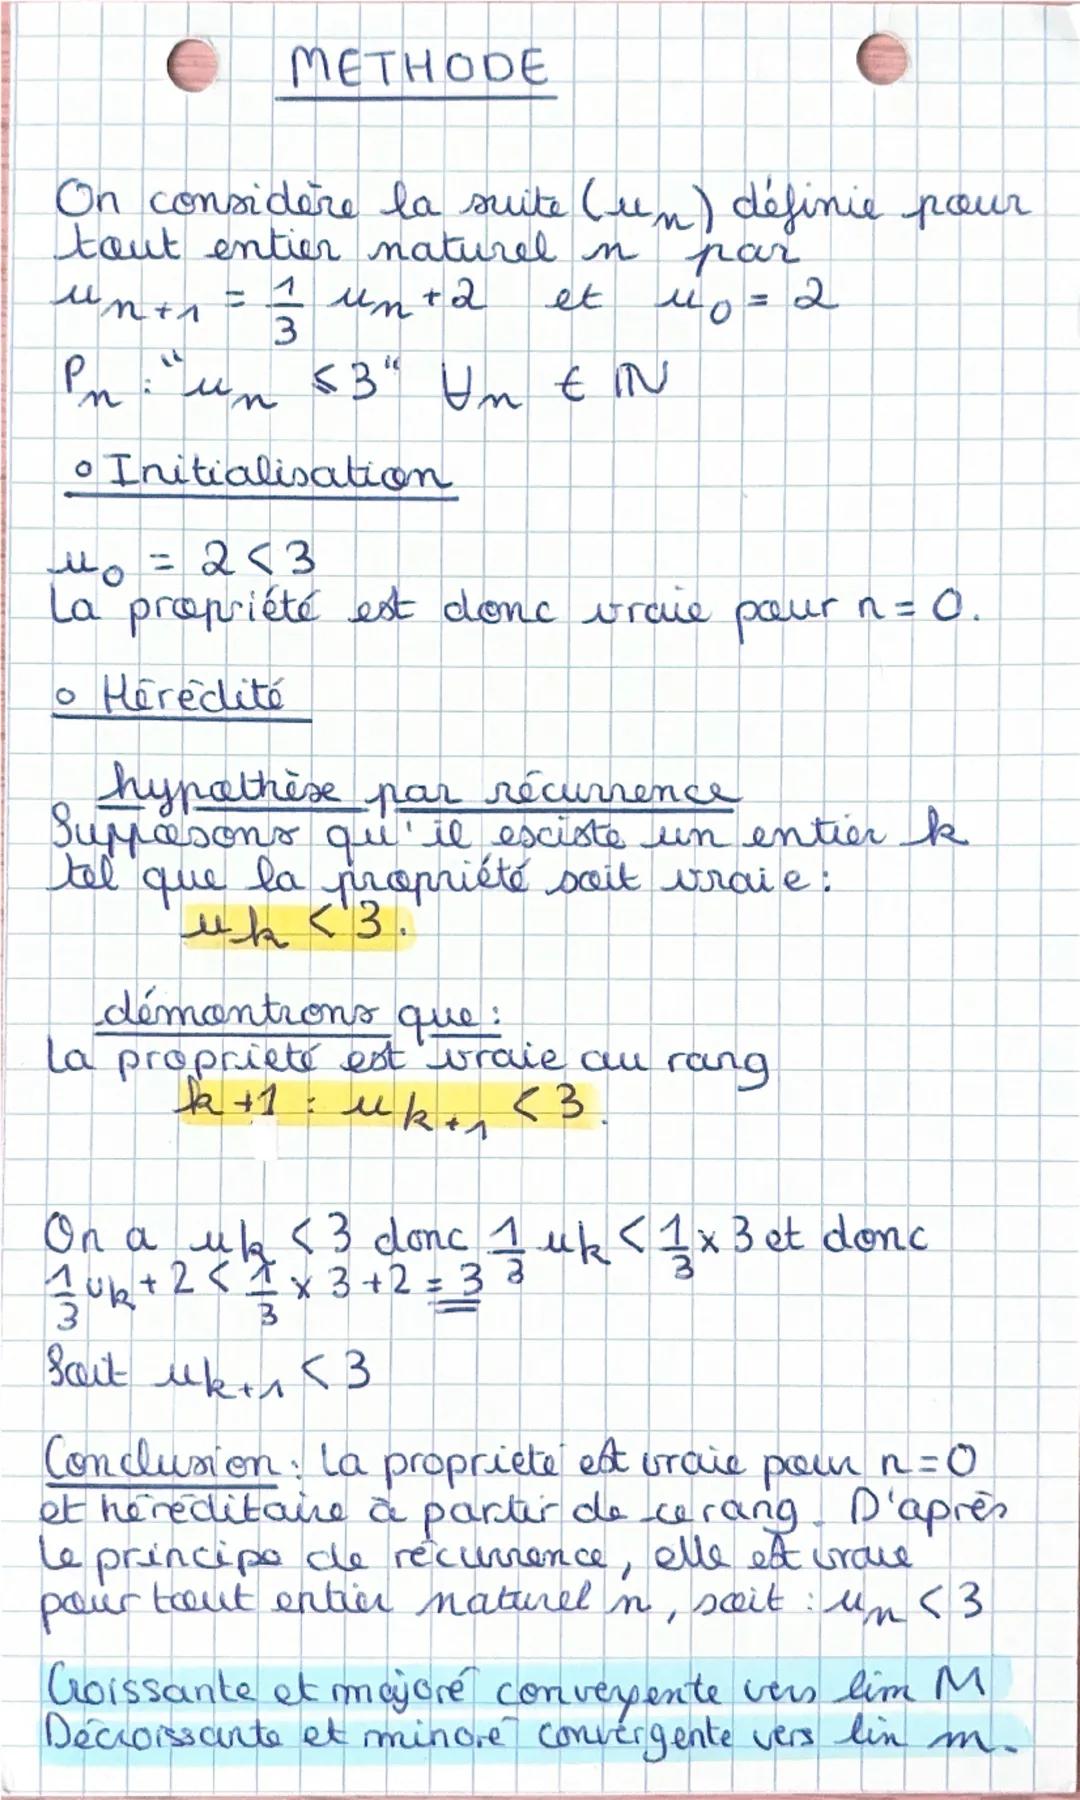 METHODE
On considère la suite (un) définie pour
tout entier naturel n par
un+1 = 1/3 un + 2 et u0 = 2
Pn : "un < 3" ∀n ∈ ℕ
∘ Initialisation
u0 = 2 < 3
La propriété est donc vraie pour n = 0.
∘ Hérédité
hypothèse par récurrence
Supposons qu'il existe un entier k
tel que la propriété soit vraie :
uk < 3.
démontrons que :
La propriété est vraie au rang
k+1 : uk+1 < 3.
On a uk < 3 donc 1/3 uk < 1/3 x 3 et donc
1/3 uk + 2 < 1/3 x 3 + 2 = 3
Soit uk+1 < 3
Conclusion : La propriété est vraie pour n = 0
et héréditaire à partir de ce rang. D'après
le principe de récurrence, elle est vraie
pour tout entier naturel n, soit : un < 3
Croissante et majoré convergente vers lim M
Décroissante et minoré convergente vers lim m.